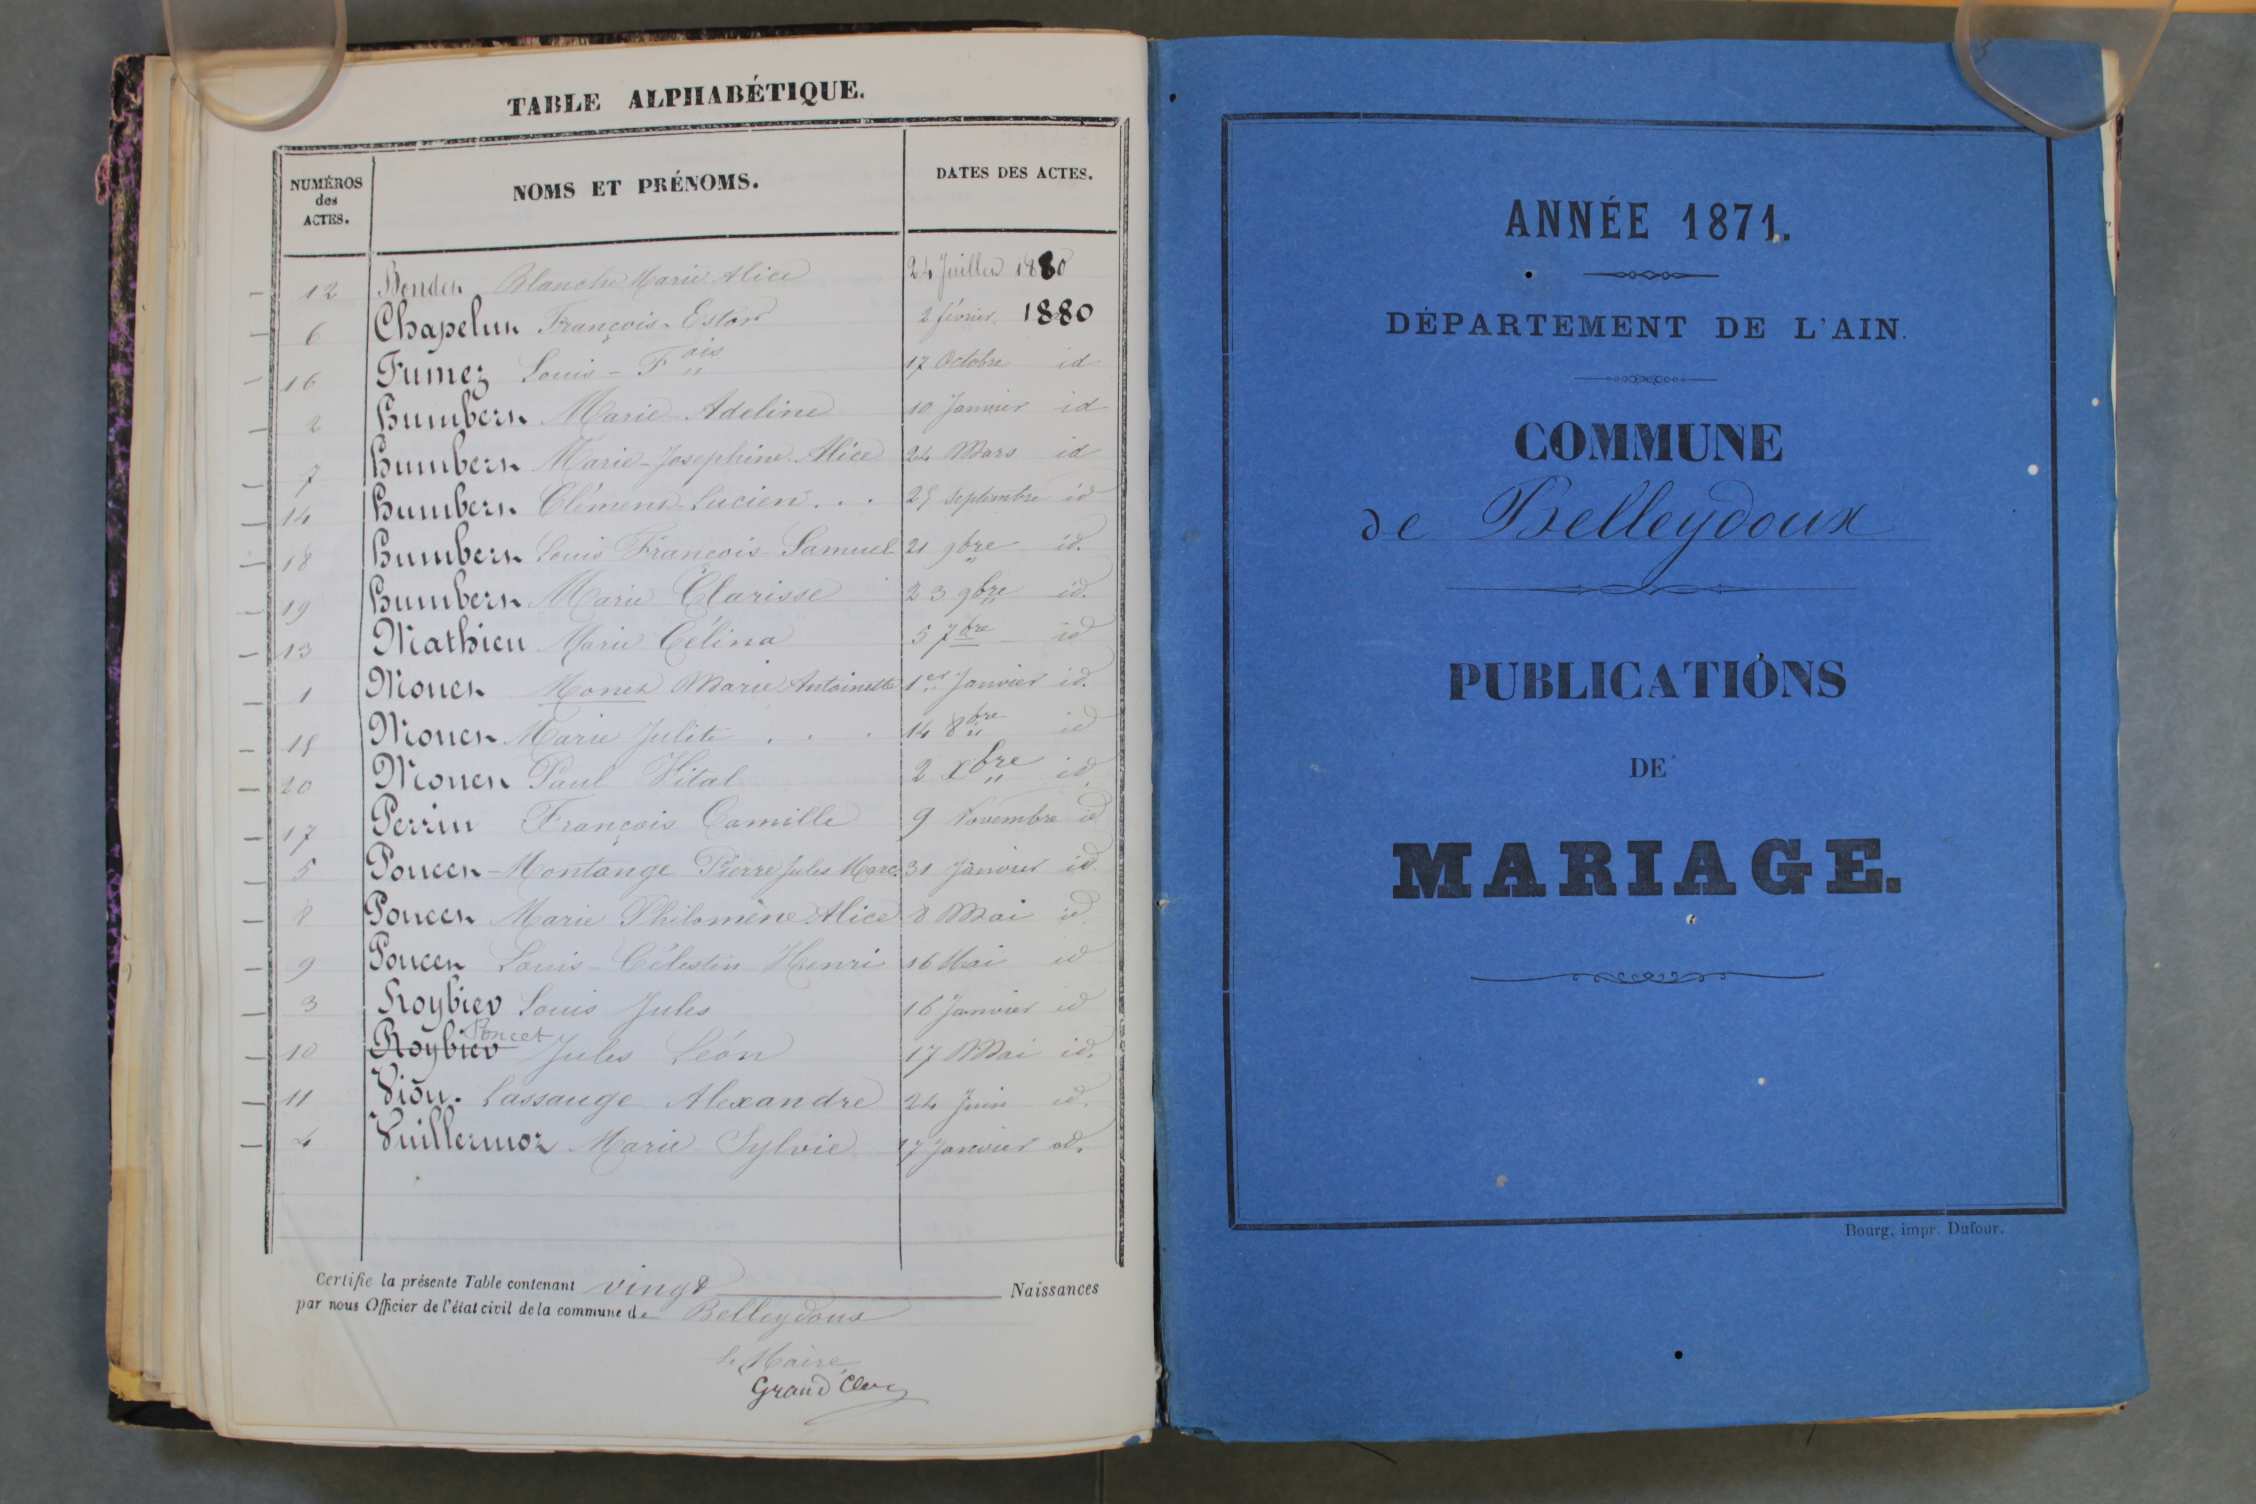 TABLE ALPHABÉTIQUE.
NUMÉROS des ACTES. NOMS ET PRÉNOMS. DATES DES ACTES.
12 Blanche Marie Alice 24 Juillet 1880
6 Chapelut François 2 février 1880
16 Fumez Louis - Fois 17 Octobre id
2 Humbert Marie Adeline 10 Janvier id
7 Humbert Marie-Josephine Alice 24 Mars id
14 Humbert Clément Lucien . . 25 Septembre id
18 Humbert Louis François Samuel 21 9bre id.
19 Humbert Marie Clarisse 23 9bre id.
13 Mathieu Marie Célina 5 7bre id
1 Monet Monet Marie Antoinette 1er Janvier id.
15 Monet Marie Julite . . . 14 8bre id
20 Monet Paul Vital 2 Xbre id
17 Perrin François Camille 9 Novembre id
5 Poncet-Montange Pierre Jules Marc 31 Janvier id.
8 Poncet Marie Philomène Alice 8 Mai id
9 Poncet Louis-Célestin Henri 16 Mai id
3 Roybier Louis Jules 16 Janvier id
10 Roybier Poncet Jules Léon 17 Mai id.
11 Vion. Lassauge Alexandre 24 Juin id.
4 Vuillermoz Marie Sylvie 17 Janvier id.
Certifie la présente Table contenant vingt Naissances
par nous Officier de l'état civil de la commune de Belleydoux
Le Maire
Grand Clerc
ANNÉE 1871.
DÉPARTEMENT DE L'AIN.
COMMUNE
de Belleydoux
PUBLICATIONS
DE
MARIAGE.
Bourg, impr. Dufour.